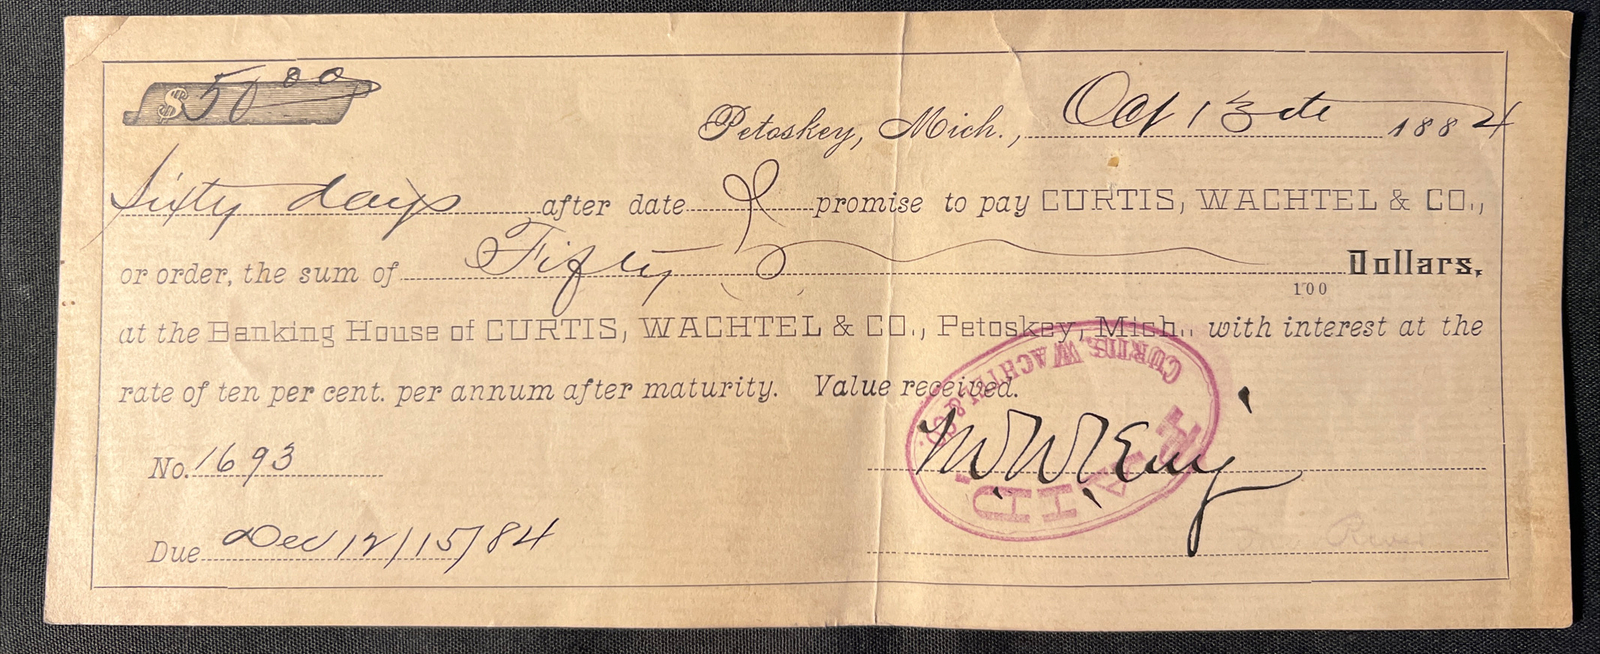 $50 00
Petoskey, Mich., Oct 13th 1884
Sixty days after date I promise to pay CURTIS, WACHTEL & CO.,
or order, the sum of Fifty Dollars,
100
at the Banking House of CURTIS, WACHTEL & CO., Petoskey, Mich., with interest at the
rate of ten per cent. per annum after maturity. Value received.
CURTIS, WACHTEL & CO.
PAID
No. 1693
Due Dec 12/15/84
River